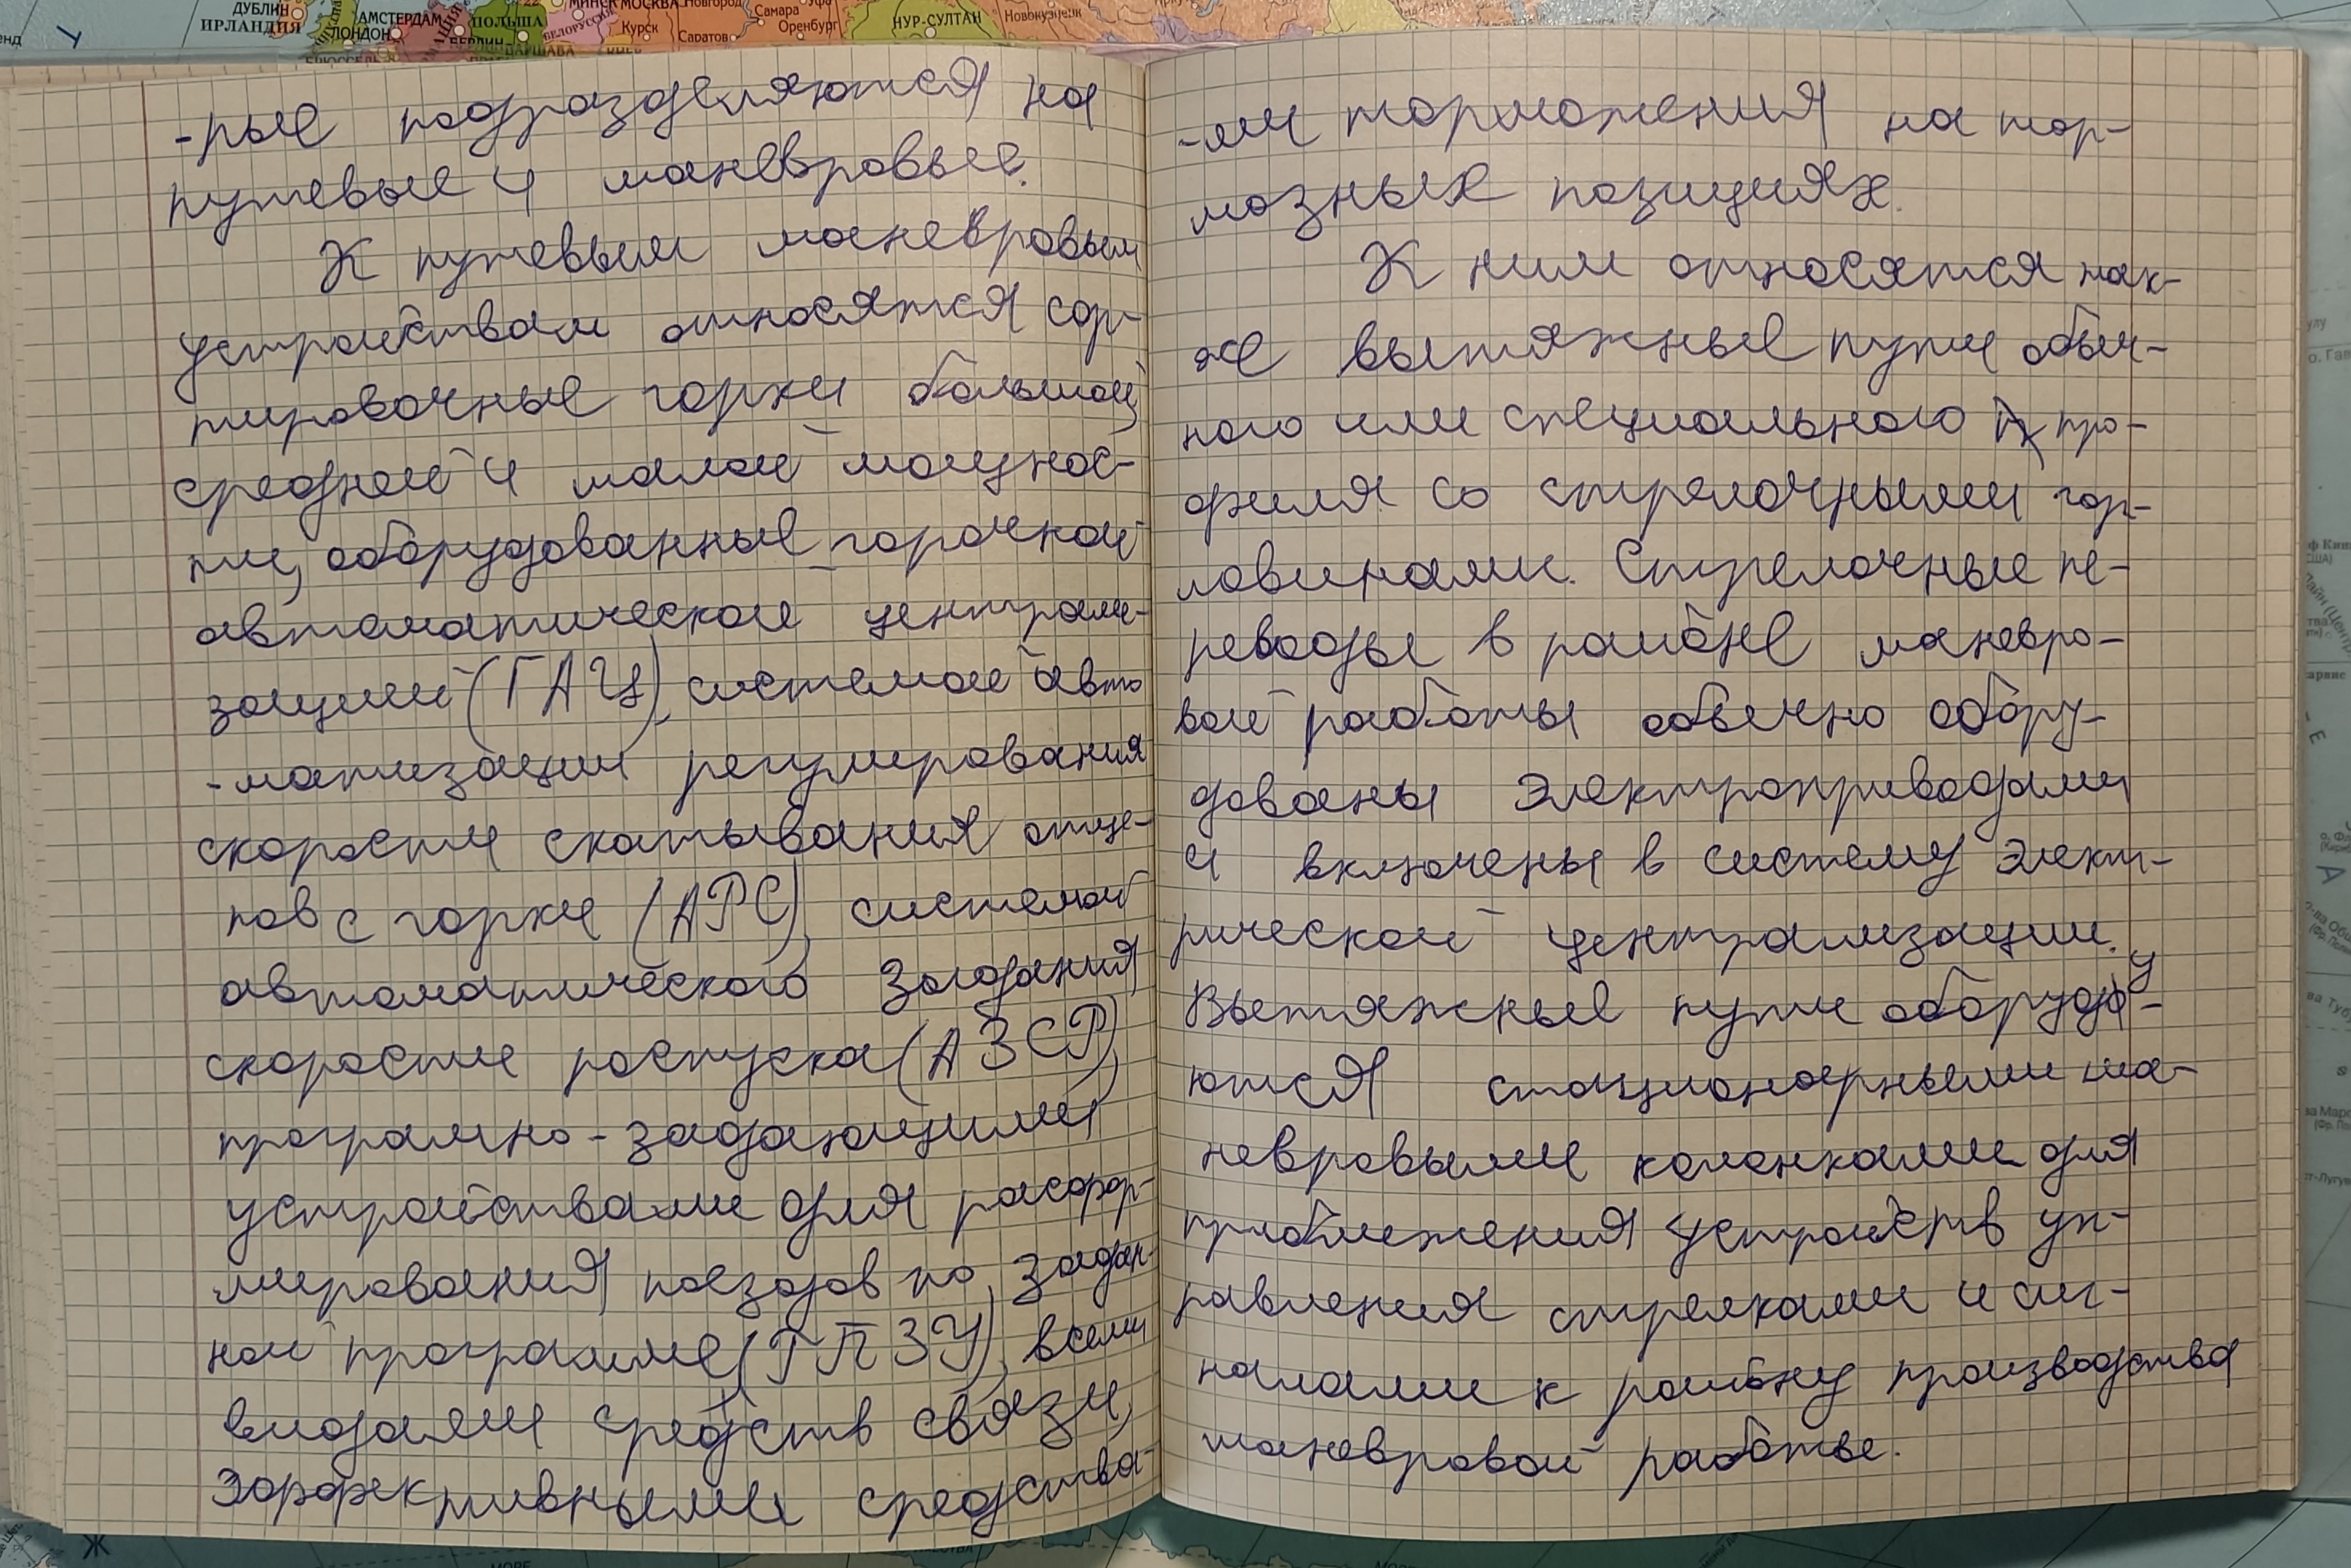 ДУБЛИН
ИРЛАНДИЯ
АМСТЕРДАМ
ЛОНДОН
ПОЛЬША
МИНСК
МОСКВА
Новгород
Самара
Курск
Саратов
Оренбург
НУР-СУЛТАН
Новокузнецк
-рые подразделяются на
путевые и маневровые.
К путевым маневровым
устройствам относятся сор-
тировочные горки большой,
средней и малой мощнос-
ти, оборудованные горочной
автоматической централи-
зацией (ГАЦ), системой авто
-матизации регулирования
скорости скатывания отце-
пов с горки (АРС), системой
автоматического задания
скорости роспуска (АЗСР),
програмно-задающими
устройствами для расфор-
мирования поездов по задан-
ной программе (ГПЗУ), всеми
видами средств связи,
эффективными средства-
-ми торможения на тор-
мозных позициях.
К ним относятся так-
же вытяжные пути обыч-
ного или специального про-
филя со стрелочными гор-
ловинами. Стрелочные пе-
реводы в районе маневро-
вой работы обычно обору-
дованы электроприводами
и включены в систему элект-
рической централизации.
Вытяжные пути оборуду-
ются стационарными ма-
невровыми колонками для
приближения устройств уп-
равления стрелками и сиг-
налами к району производства
маневровой работы.